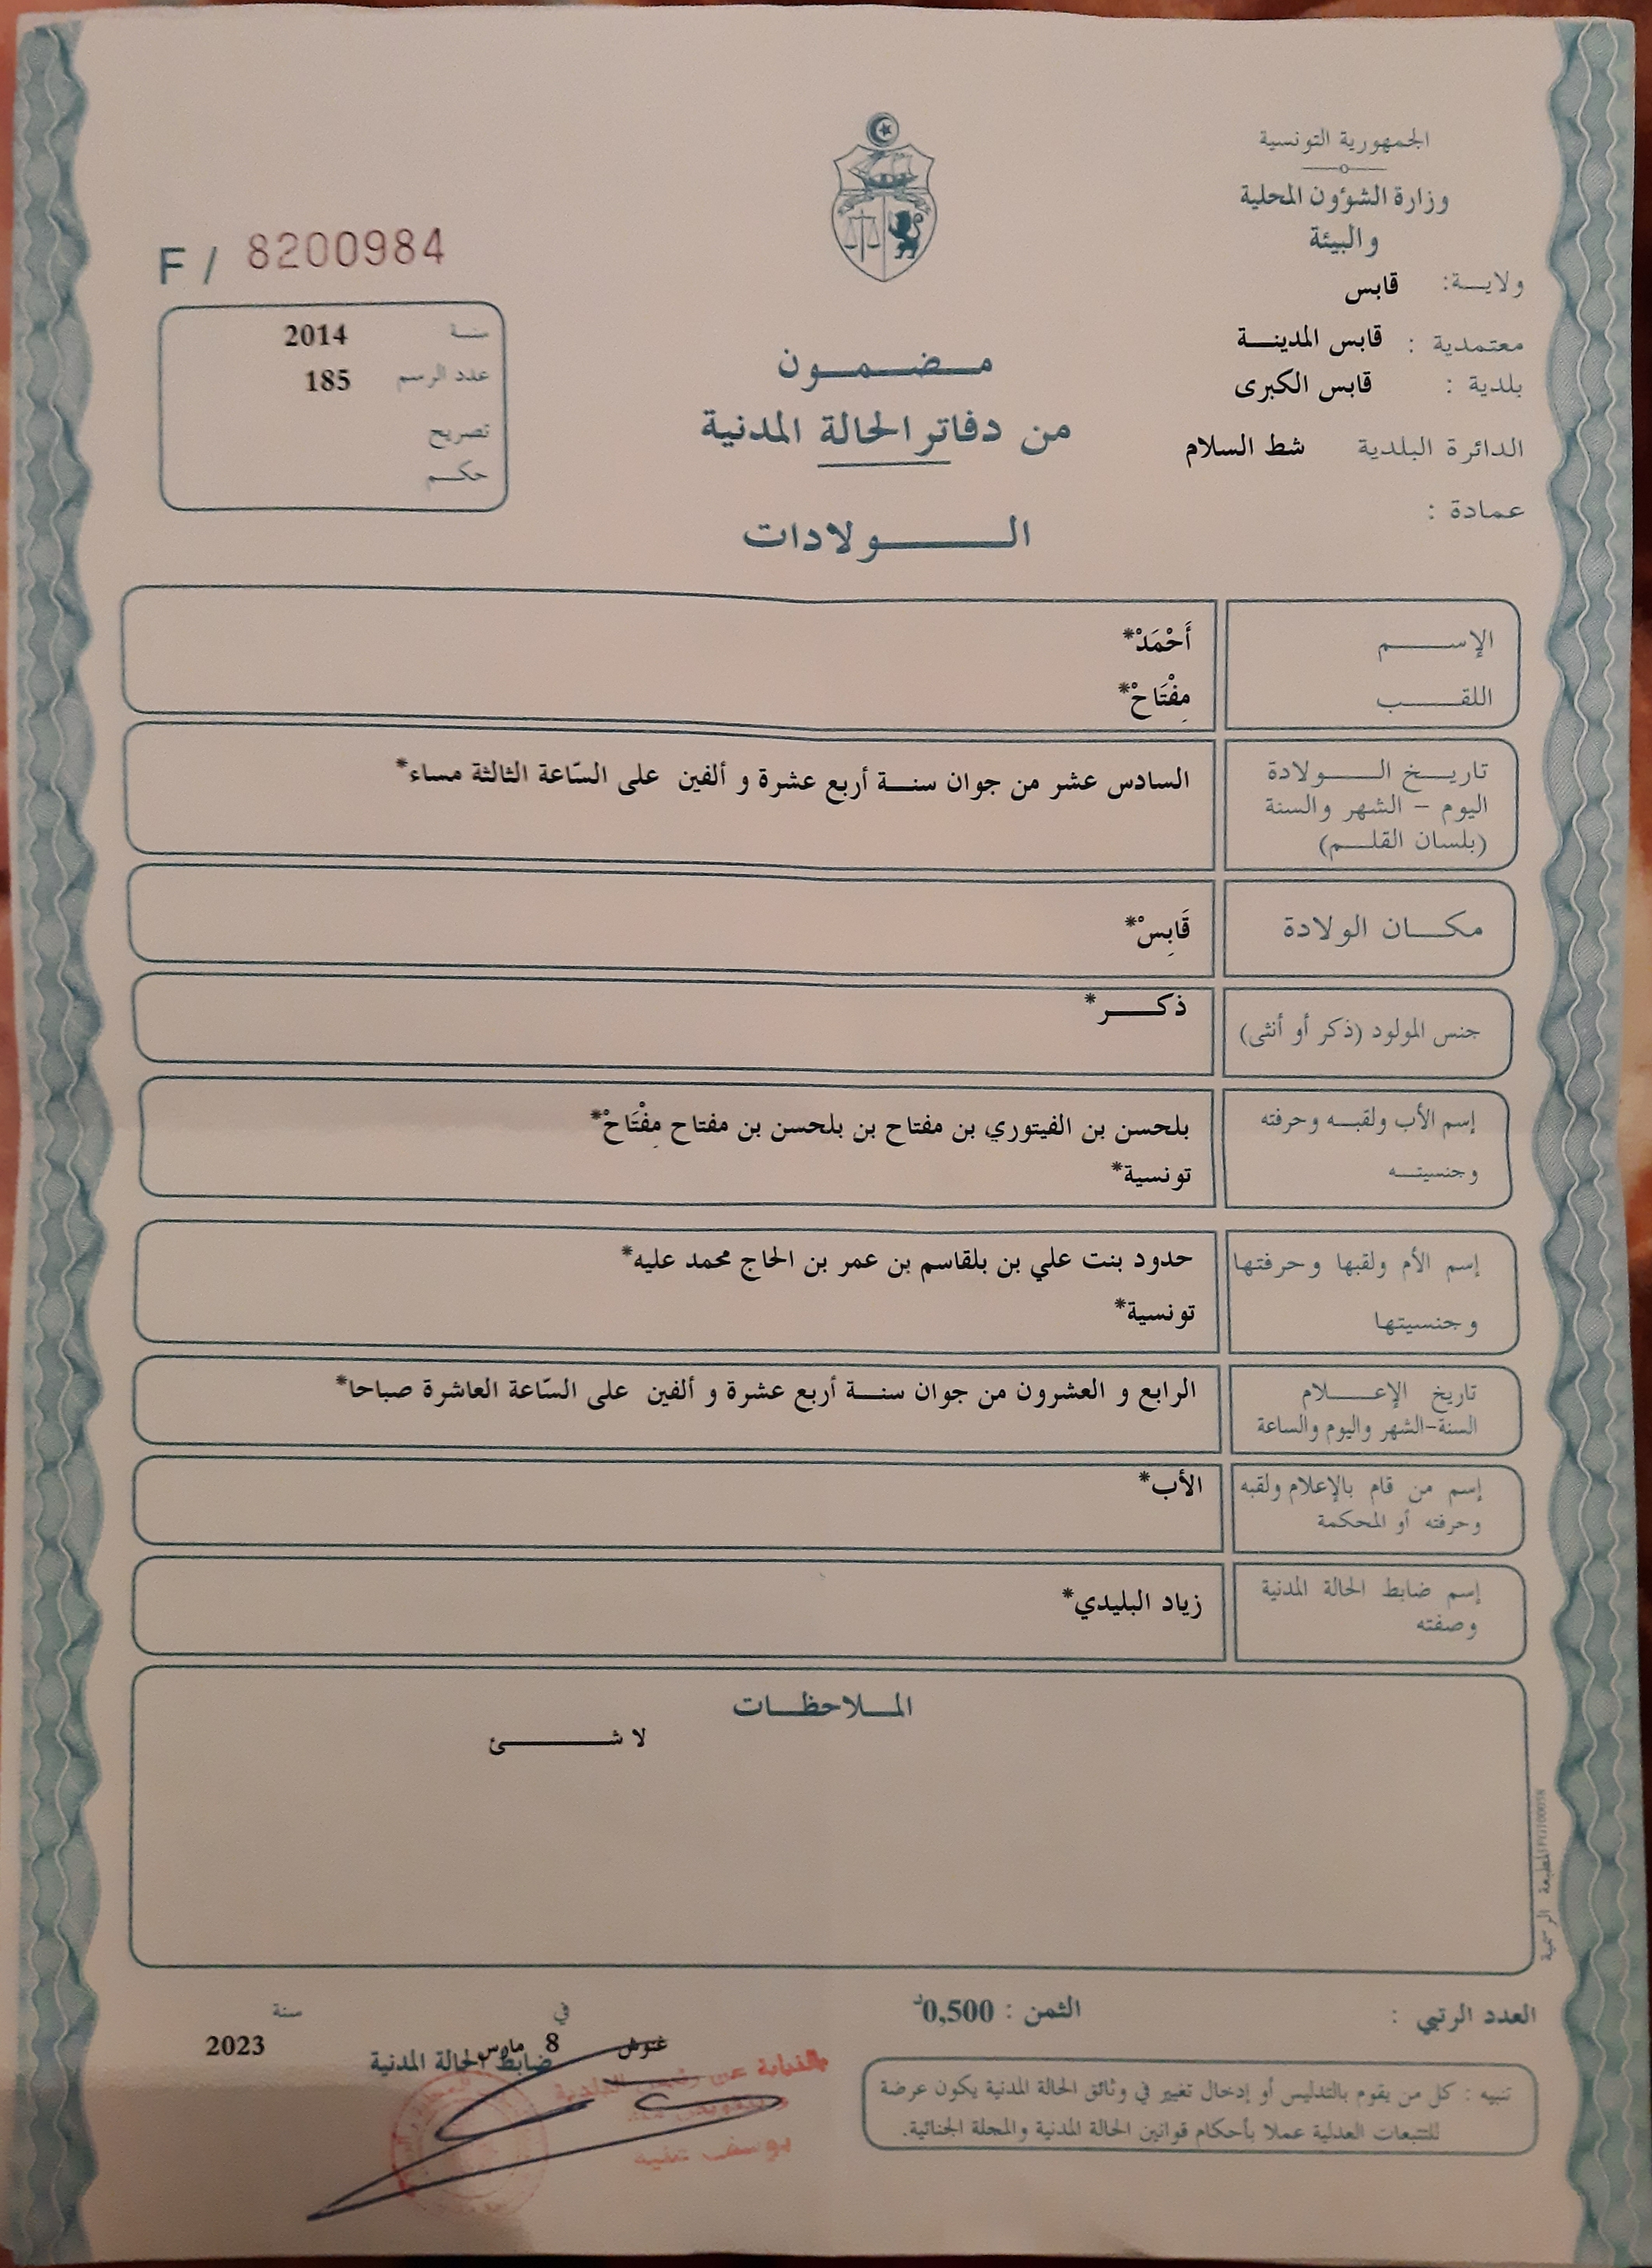 الجمهورية التونسية
وزارة الشؤون المحلية
والبيئة
ولايـــة: قابس
معتمدية : قابس المدينــــة
بلدية : قابس الكبرى
الدائرة البلدية شط السلام
عمادة :
F / 8200984
سنـــة 2014
عدد الرسم 185
تصريح
حكـــم
مــضــمــون
من دفاتر الحالة المدنية
الــــولادات
الإســـــم أَحْمَدْ*
اللقــــب مِفْتَاحْ*
تاريــخ الــــولادة
اليوم – الشهر والسنة
(بلسان القلـــم)
السادس عشر من جوان سنـــة أربع عشرة و ألفين على السّاعة الثالثة مساء*
مكـــان الولادة قَابِسْ*
جنس المولود (ذكر أو أنثى) ذكــــر*
إسم الأب ولقبــه وحرفته
وجنسيتــه
بلحسن بن الفيتوري بن مفتاح بن بلحسن بن مفتاح مِفْتَاحْ*
تونسية*
إسم الأم ولقبها وحرفتها
وجنسيتها
حدود بنت علي بن بلقاسم بن عمر بن الحاج محمد عليه*
تونسية*
تاريخ الإعــــلام
السنة-الشهر واليوم والساعة
الرابع و العشرون من جوان سنـــة أربع عشرة و ألفين على السّاعة العاشرة صباحا*
إسم من قام بالإعلام ولقبه
وحرفته أو المحكمة
الأب*
إسم ضابط الحالة المدنية
وصفته
زياد البليدي*
المــلاحظــات
لا شـــــــئ
العدد الرتبي :
الثمن : 0,500د
غنوش في 8 مارس سنة 2023
ضابط الحالة المدنية
بالنيابة عن رئيس البلدية
يوسف عليه
تنبيه : كل من يقوم بالتدليس أو إدخال تغيير في وثائق الحالة المدنية يكون عرضة
للتتبعات العدلية عملا بأحكام قوانين الحالة المدنية والمجلة الجنائية.
المطبعة الرسمية